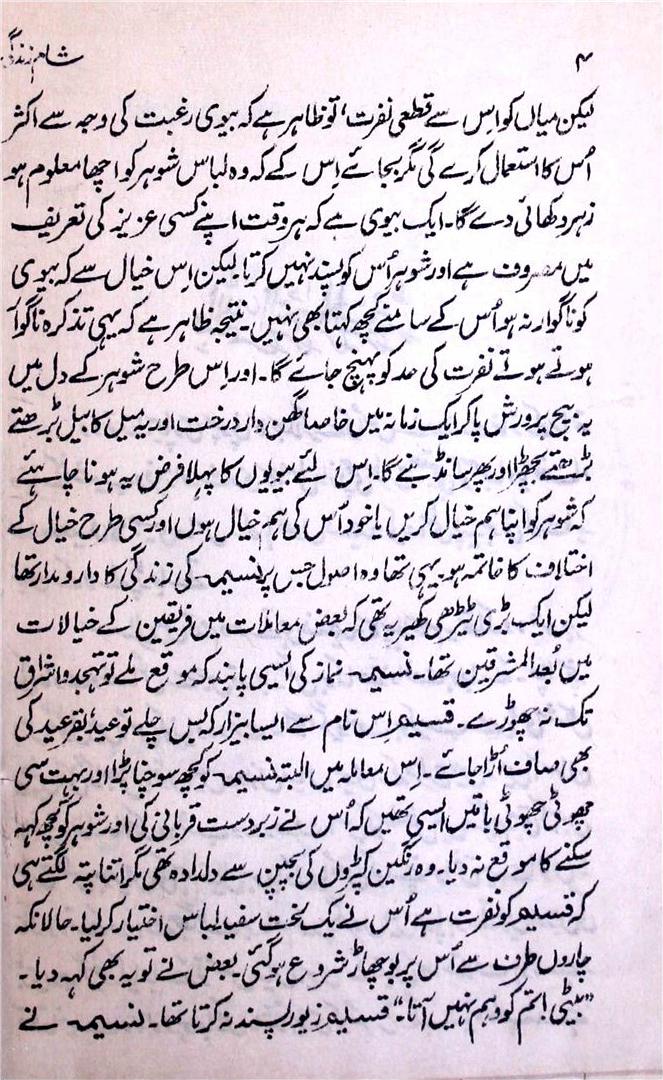 ۴ شام زندگی
لیکن میاں کو اِس سے قطعی نفرت، تو ظاہر ہے کہ بیوی رغبت کی وجہ سے اکثر
اُس کا استعمال کرے گی مگر بجائے اِس کے کہ وہ لباس شوہر کو اچھا معلوم ہو
زہر دکھائی دے گا۔ ایک بیوی ہے کہ ہر وقت اپنے کسی عزیز کی تعریف
میں مصروف ہے اور شوہر اُس کو پسند نہیں کرتا۔ لیکن اِس خیال سے کہ بیوی
کو ناگوار نہ ہو اُس کے سامنے کچھ کہتا بھی نہیں۔ نتیجہ ظاہر ہے کہ یہی تذکرہ ناگوار
ہوتے ہوتے نفرت کی حد کو پہنچ جائے گا۔ اور اِس طرح شوہر کے دل میں
یہ بیج پرورش پا کر ایک زمانہ میں خاصا گھن دار درخت اور یہ میل کا بیل بڑھتے
بڑھتے بچھڑا اور پھر سانڈ بنے گا۔ اِس لئے بیویوں کا پہلا فرض یہ ہونا چاہئے
کہ شوہر کو اپنا ہم خیال کریں یا خود اُس کی ہم خیال ہوں اور کسی طرح خیال کے
اختلاف کا خاتمہ ہو۔ یہی تھا وہ اصول جس پر نسیمہ کی زندگی کا دارومدار تھا
لیکن ایک بڑی ٹیڑھی کھیر یہ تھی کہ بعض معاملات میں فریقین کے خیالات
میں بُعد المشرقین تھا۔ نسیمہ نماز کی ایسی پابند کہ موقع ملے تو تہجد و اشراق
تک نہ چھوڑے۔ قسیم اِس نام سے ایسا بیزار کہ بس چلے تو عید بقرعید کی
بھی صاف اُڑا جائے۔ اِس معاملہ میں البتہ نسیمہ کو کچھ سوچنا پڑا اور بہت سی
چھوٹی چھوٹی باتیں ایسی تھیں کہ اُس نے زبردست قربانی کی اور شوہر کو کچھ کہہ
سکنے کا موقع نہ دیا۔ وہ رنگین کپڑوں کی بچپن سے دلدادہ تھی مگر اتنا پتہ لگتے ہی
کہ قسیم کو نفرت ہے اُس نے یک لخت سفید لباس اختیار کر لیا۔ حالانکہ
چاروں طرف سے اُس پر بوچھاڑ شروع ہو گئی۔ بعض نے تو یہ بھی کہہ دیا۔
"بیٹی! تم کو وہم نہیں آتا۔" قسیم زیور پسند نہ کرتا تھا۔ نسیمہ نے